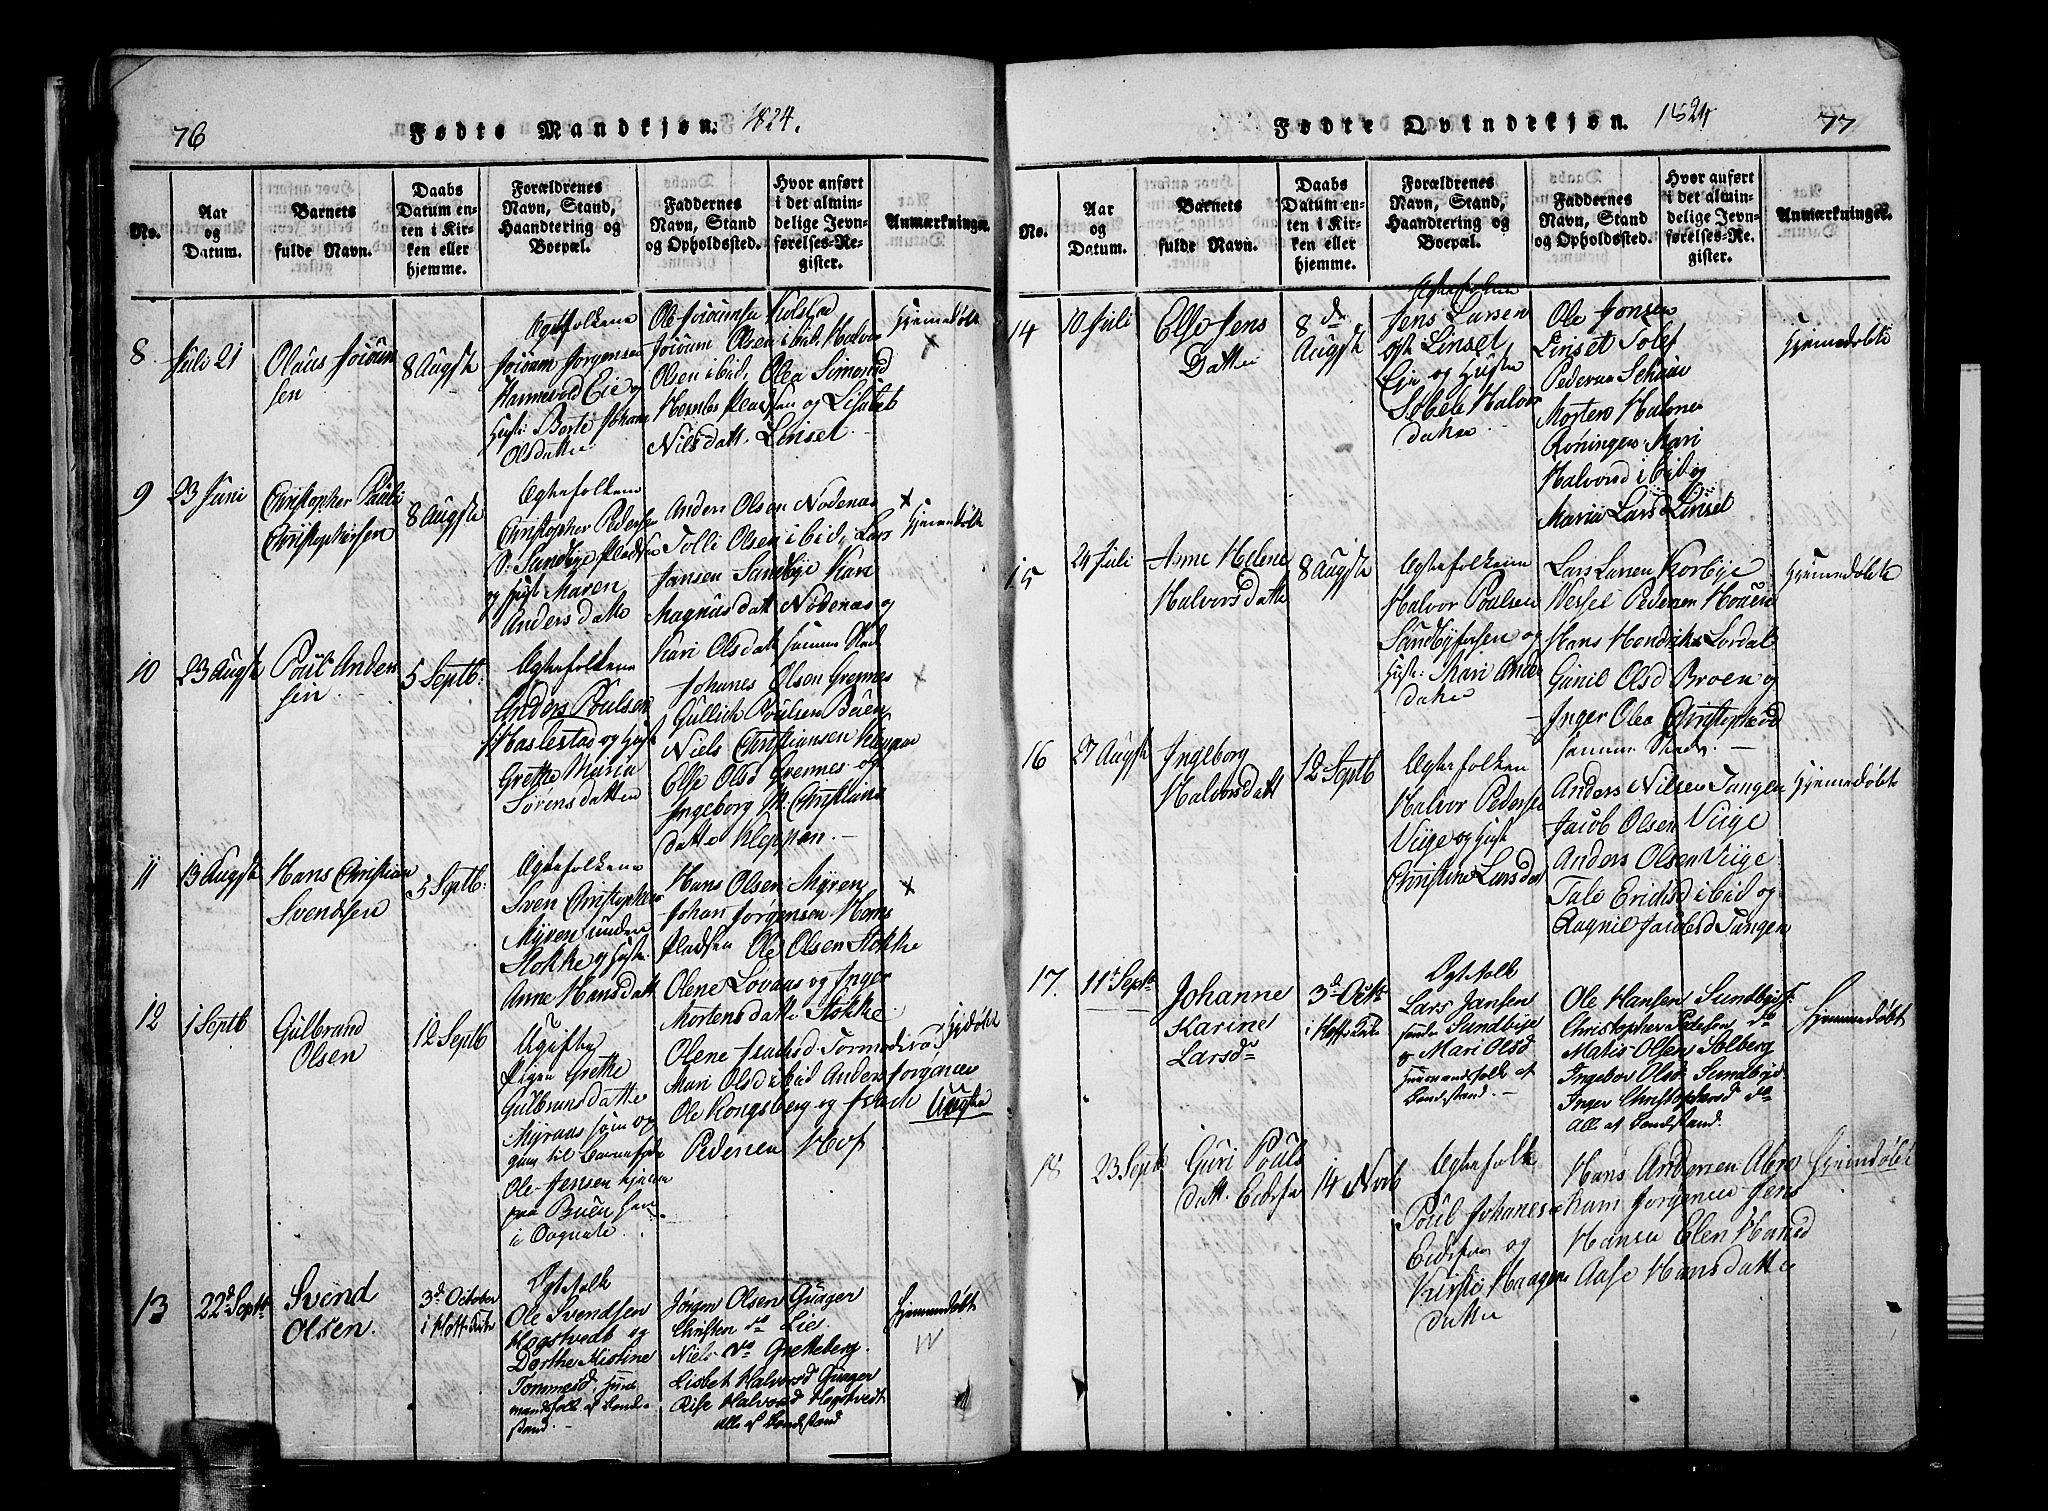 76
Fødte Mandkjøn. 1824.
No.
Aar
og
Datum.
Barnets
fulde Navn.
Daabs
Datum en-
ten i Kir-
ken eller
hjemme.
Forældrenes
Navn, Stand,
Haandtering og
Boepæl.
Faddernes
Navn, Stand
og Opholdssted.
Hvor anført
i det almin-
delige Jevn-
førelses-Re-
gister.
Anmærkninger.
8
Juli 21
Olaus Joium
sen
8 Augst
Ægtefolkene
Joium Jorgensen
Eie og
Berte Johane
Olsdatter
Olsen ibid. Halvor
Olsen ibid, Olea Simensd
Pladsen og Lisabeth
Nilsdatt. Linset
Hjemedøbt
9
23 Juni
Christopher Paul
Christophersen
8 Augst
Ægtefolkene
Christopher Pedersen
Sandbye Pladsen
og Hust Maren
Anders datte
Anders Olsen Nødenas
Tolli Olsen ibid, Lars
Jansen Sandbye Kari
Magnus datt Nødenas og
Kari Olsdatt samme Sted
Hjemedøbt
10
23 Augst
Poul Anders
sen
5 Septb:
Ægtefolkene
Anders Poulsen
Haslestad og Hust
Grethe Maria
Sørensdatter
Johanes Olsen Grennes
Gullich Poulsen Buen
Niels Christiansen Kleppan
Else Olsd Grennes og
Ingeborg M. Christians
datte Kleppan.
11
13 Augst
Hans Christian
Svendsen
5 Septb:
Ægtefolkene
Sven Christophers
Myren under
Stokke og Hust:
Anne Hansdatt
Hans Olsen Myren
Johan Jørgensen Horns
Pladsen Ole Olsen Stokke
Olene Lovaas og Inger
Mortensdatte Stokke
12
1 Septb
Gulbrand
Olsen
12 Septb
Ugifte
Pigen Grethe
Gulbransdatte
Myraas som og
gav til Barnefader
Ole Jensen
paa Buen
i
Olene
Mari Olsd ibid Anders Jorgensen
Ole Kongsberg og
Pedersen Hof
Hjdøbt
Uægte
13
22d Septbr
Svend
Olsen.
3d October
i Hoff Kirke
Ægtefolk
Ole Svendsen
Hogstvedt og
Dorthe Kistine
Tommesd. Huus
mandsfolk af Bonde
stand.
Jørgen Olsen Guager
Christen do Lie
Niels do Gretteberg.
Lisbet Halvorsd Guager
Rise Halvorsd Hogstvedt
Alle af Bondestand
Hjemmedøbt
Fødte Qvindekjøn. 1824
77
No.
Aar
og
Datum.
Barnets
fulde Navn.
Daabs
Datum en-
ten i Kir-
ken eller
hjemme.
Forældrenes
Navn, Stand,
Haandtering og
Boepæl.
Faddernes
Navn, Stand
og Opholdssted.
Hvor anført
i det almin-
delige Jevn-
førelses-Re-
gister.
Anmærkninger.
14
10 Juli
Else Jens
Datter
8 de
Augst
Ægtefolkene
Jens Larsen
Linset
Eie og Hustr
Sobele Halvor
datter
Ole Jonsen
Linset Tolef
Pedersen
Morten Halvor
Roningen Mari
Halvorsd ibid og
Maria Larsd Linset
Hjemedøbte
15
24 Juli
Anne Helene
Halvorsdatte
8 Augst
Ægtefolkene
Halvor Poulsen
Sandbyfossen og
Hust: Mari Anders
datter
Lars Larsen Korbye
Wessel Pedersen
Hans Hendriks Sordal
Gunil Olsd Broen og
Inger Olea Christophersd
samme Sted.
Hjemedøbte
16
27 Augst
Ingeborg
Halvorsdatt
12 Septb
Ægtefolkene
Halvor Pedersen
Viige og Hust
Christine Larsdat
Anders Nilsen Tangen
Jacob Olsen Viige
Anders Olsen Viige
Tale Ericksd ibid og
Ragnil Jacobsd Tangen
Hjemedøbt
17.
11t Septbr
Johanne
Karine
Larsdr
3d Octbr
i Hoffs Kirke
Ægtefolk
Lars Jansen
Sundbye
og Mari Olsd
Huusmandsfolk af
Bondestand.
Ole Hansen Sundbye
Christopher Pedersen do
Matis Olsen Solberg
Ingebor Olsd Sundbye
Inger Christophersd do
Alle af Bondestand.
Hjemmedøbt
18
23 Septb
Guri Pouls
datt. Eidsfos
14 Novb
Ægtefolk
Poul Johanesen
Eidsfos og
Kirstie Haagens
datter
Hans Andersen Abra
ham Jorgensen Jens
Hansen Elen Hansd
Aase Hansdatte
Hjemedøbt